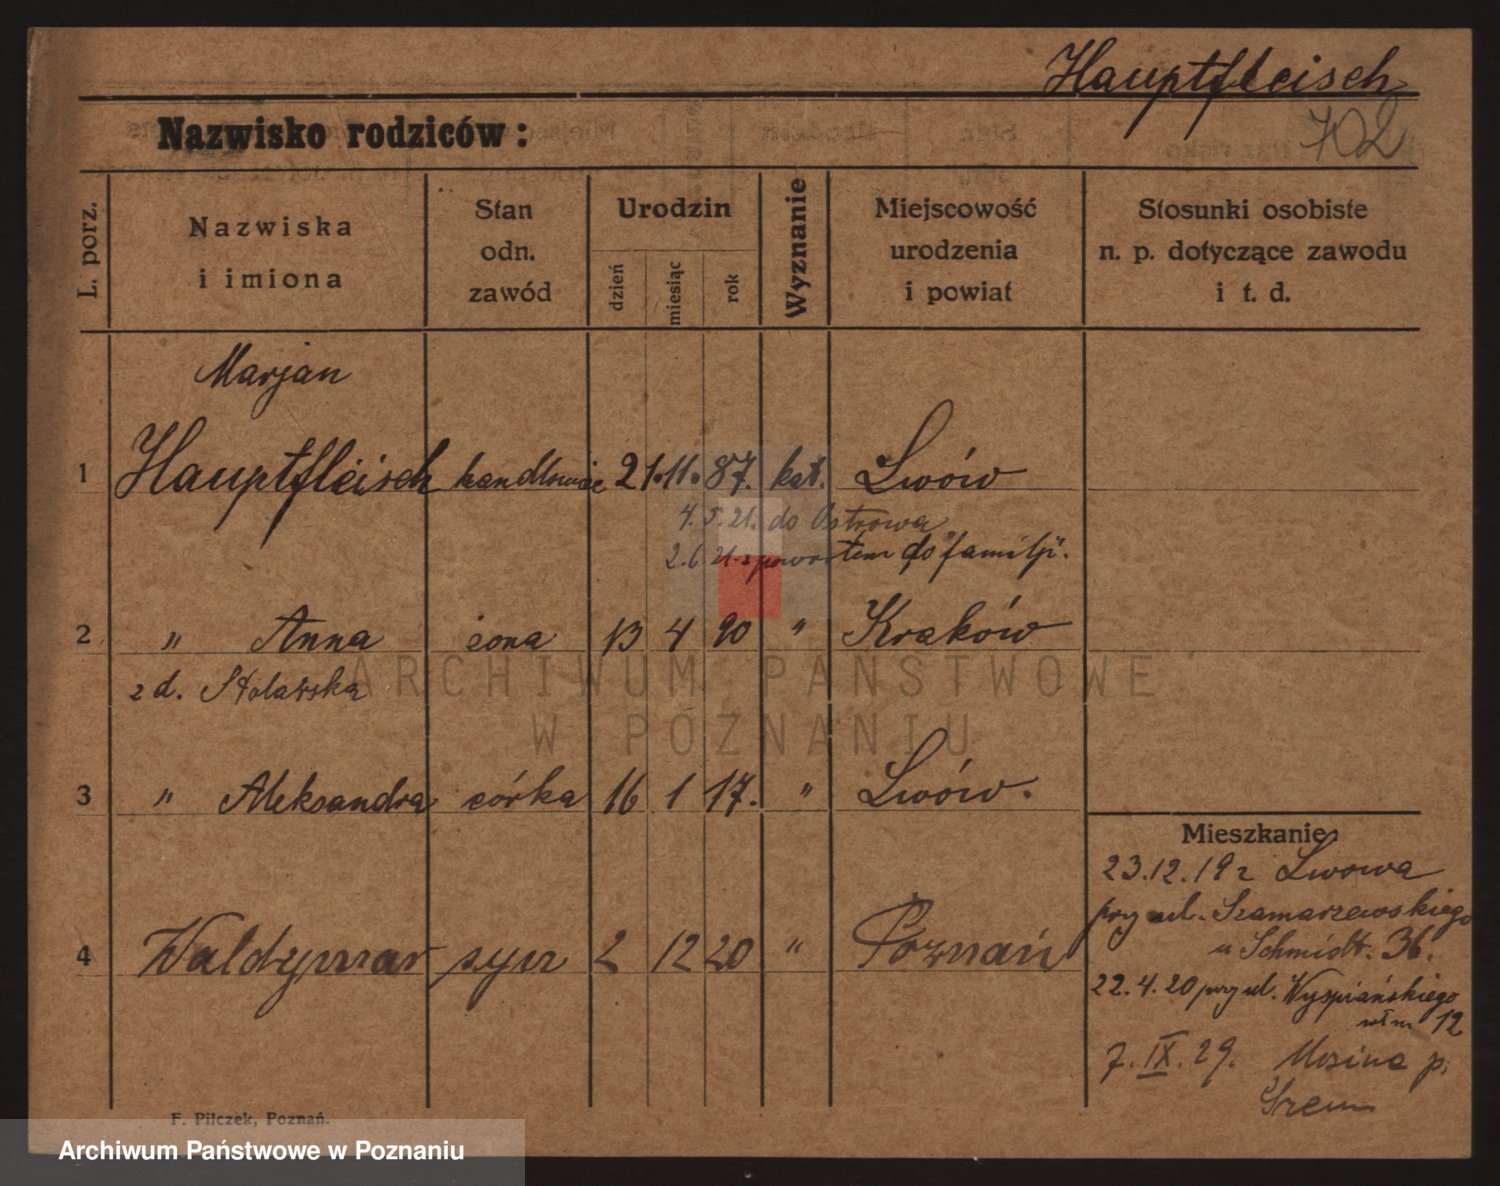 Hauptfleisch
Nazwisko rodziców:
702
L. porz.
Nazwiska
i imiona
Stan
odn.
zawód
Urodzin
dzień
miesiąc
rok
Wyznanie
Miejscowość
urodzenia
i powiat
Stosunki osobiste
n. p. dotyczące zawodu
i t. d.
Marjan
1 Hauptfleisch handlowiec 21. 11. 87. kat. Lwów
4. 5. 21. do Ostrowa
2. 6. 21. z powrotem do "familji".
2 " Anna żona 13 4 90 " Kraków
z d. Stolarska
3 " Aleksandra córka 16 1 17. " Lwów.
4 Waldymar syn 2 12 20 " Poznań
Mieszkanie
23.12.19 z Lwowa
przy ul. Szamarzewskiego
u Schmidt. 36.
22.4.20 przy ul. Wyspiańskiego
12
7. IX. 29. Mosina p.
Śrem
F. Pilczek, Poznań.
ARCHIWUM PAŃSTWOWE
W POZNANIU
Archiwum Państwowe w Poznaniu